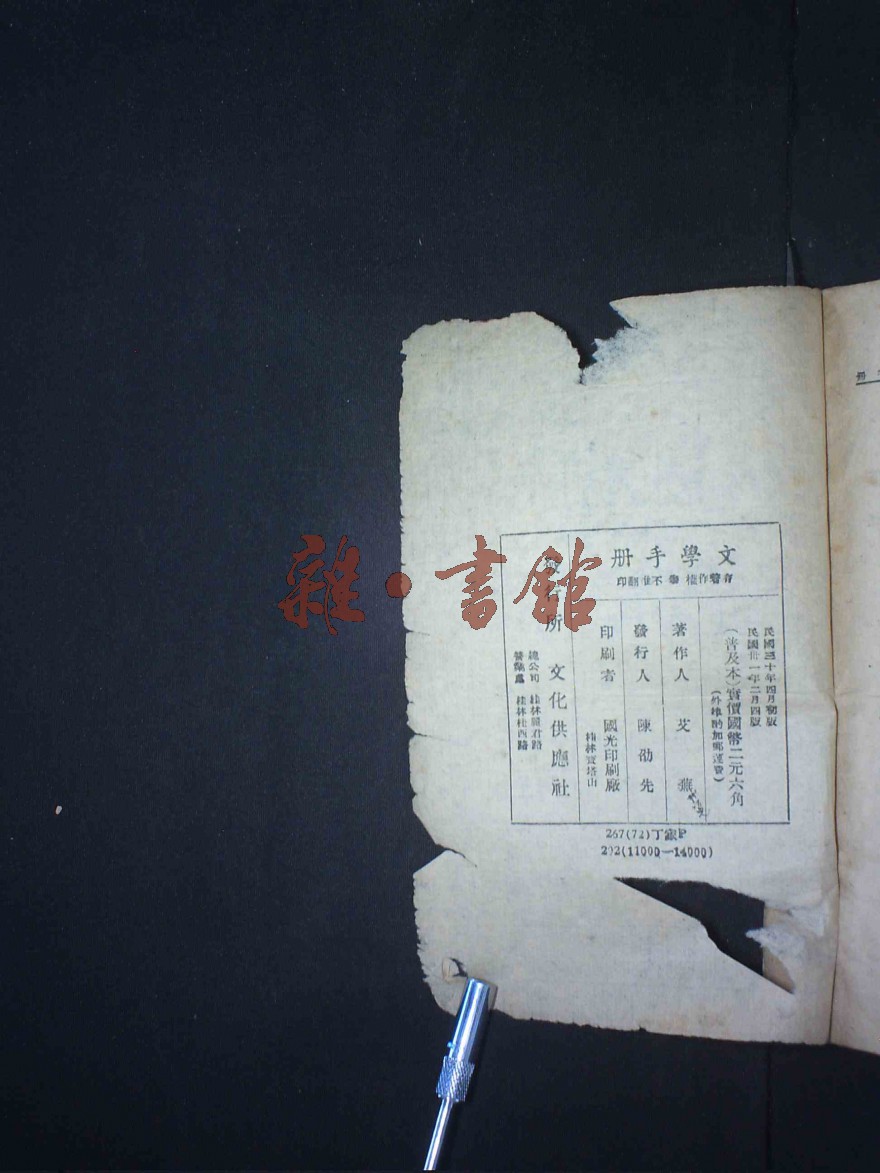 文學手册
有著作權 不准翻印
民國三十年四月初版
民國卅一年二月四版
(普及本)實價國幣二元六角
(外埠酌加郵運費)
著作人 艾蕪
發行人 陳劭先
印刷者 國光印刷廠
桂林寶塔山
發行所 文化供應社
總公司 桂林麗君路
營業處 桂林桂西路
267(72)丁
202(11000—14000)
雜·書館
册